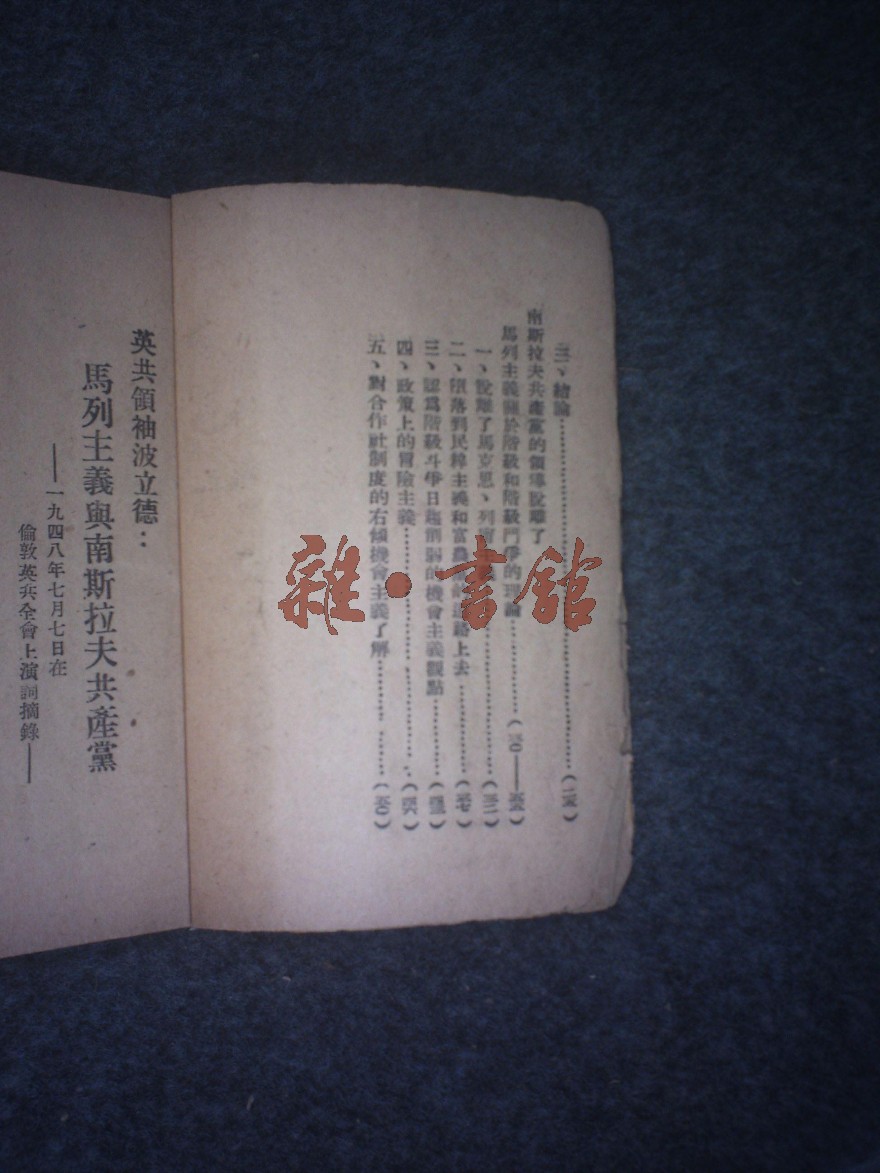 三、結論……………………(二五)
南斯拉夫共產黨的領導脫離了
馬列主義關於階級和階級鬥爭的理論……………(三〇——五五)
一、脫離了馬克思、列寧………(三一)
二、墮落到民粹主義和富農道路上去…………
三、認爲階級斗爭日趨削弱的機會主義觀點…………
四、政策上的冒險主義…………………
五、對合作社制度的右傾機會主義了解…………(五〇)
英共領袖波立德：
馬列主義與南斯拉夫共產黨
——一九四八年七月七日在
倫敦英共全會上演詞摘錄——
雜·書館